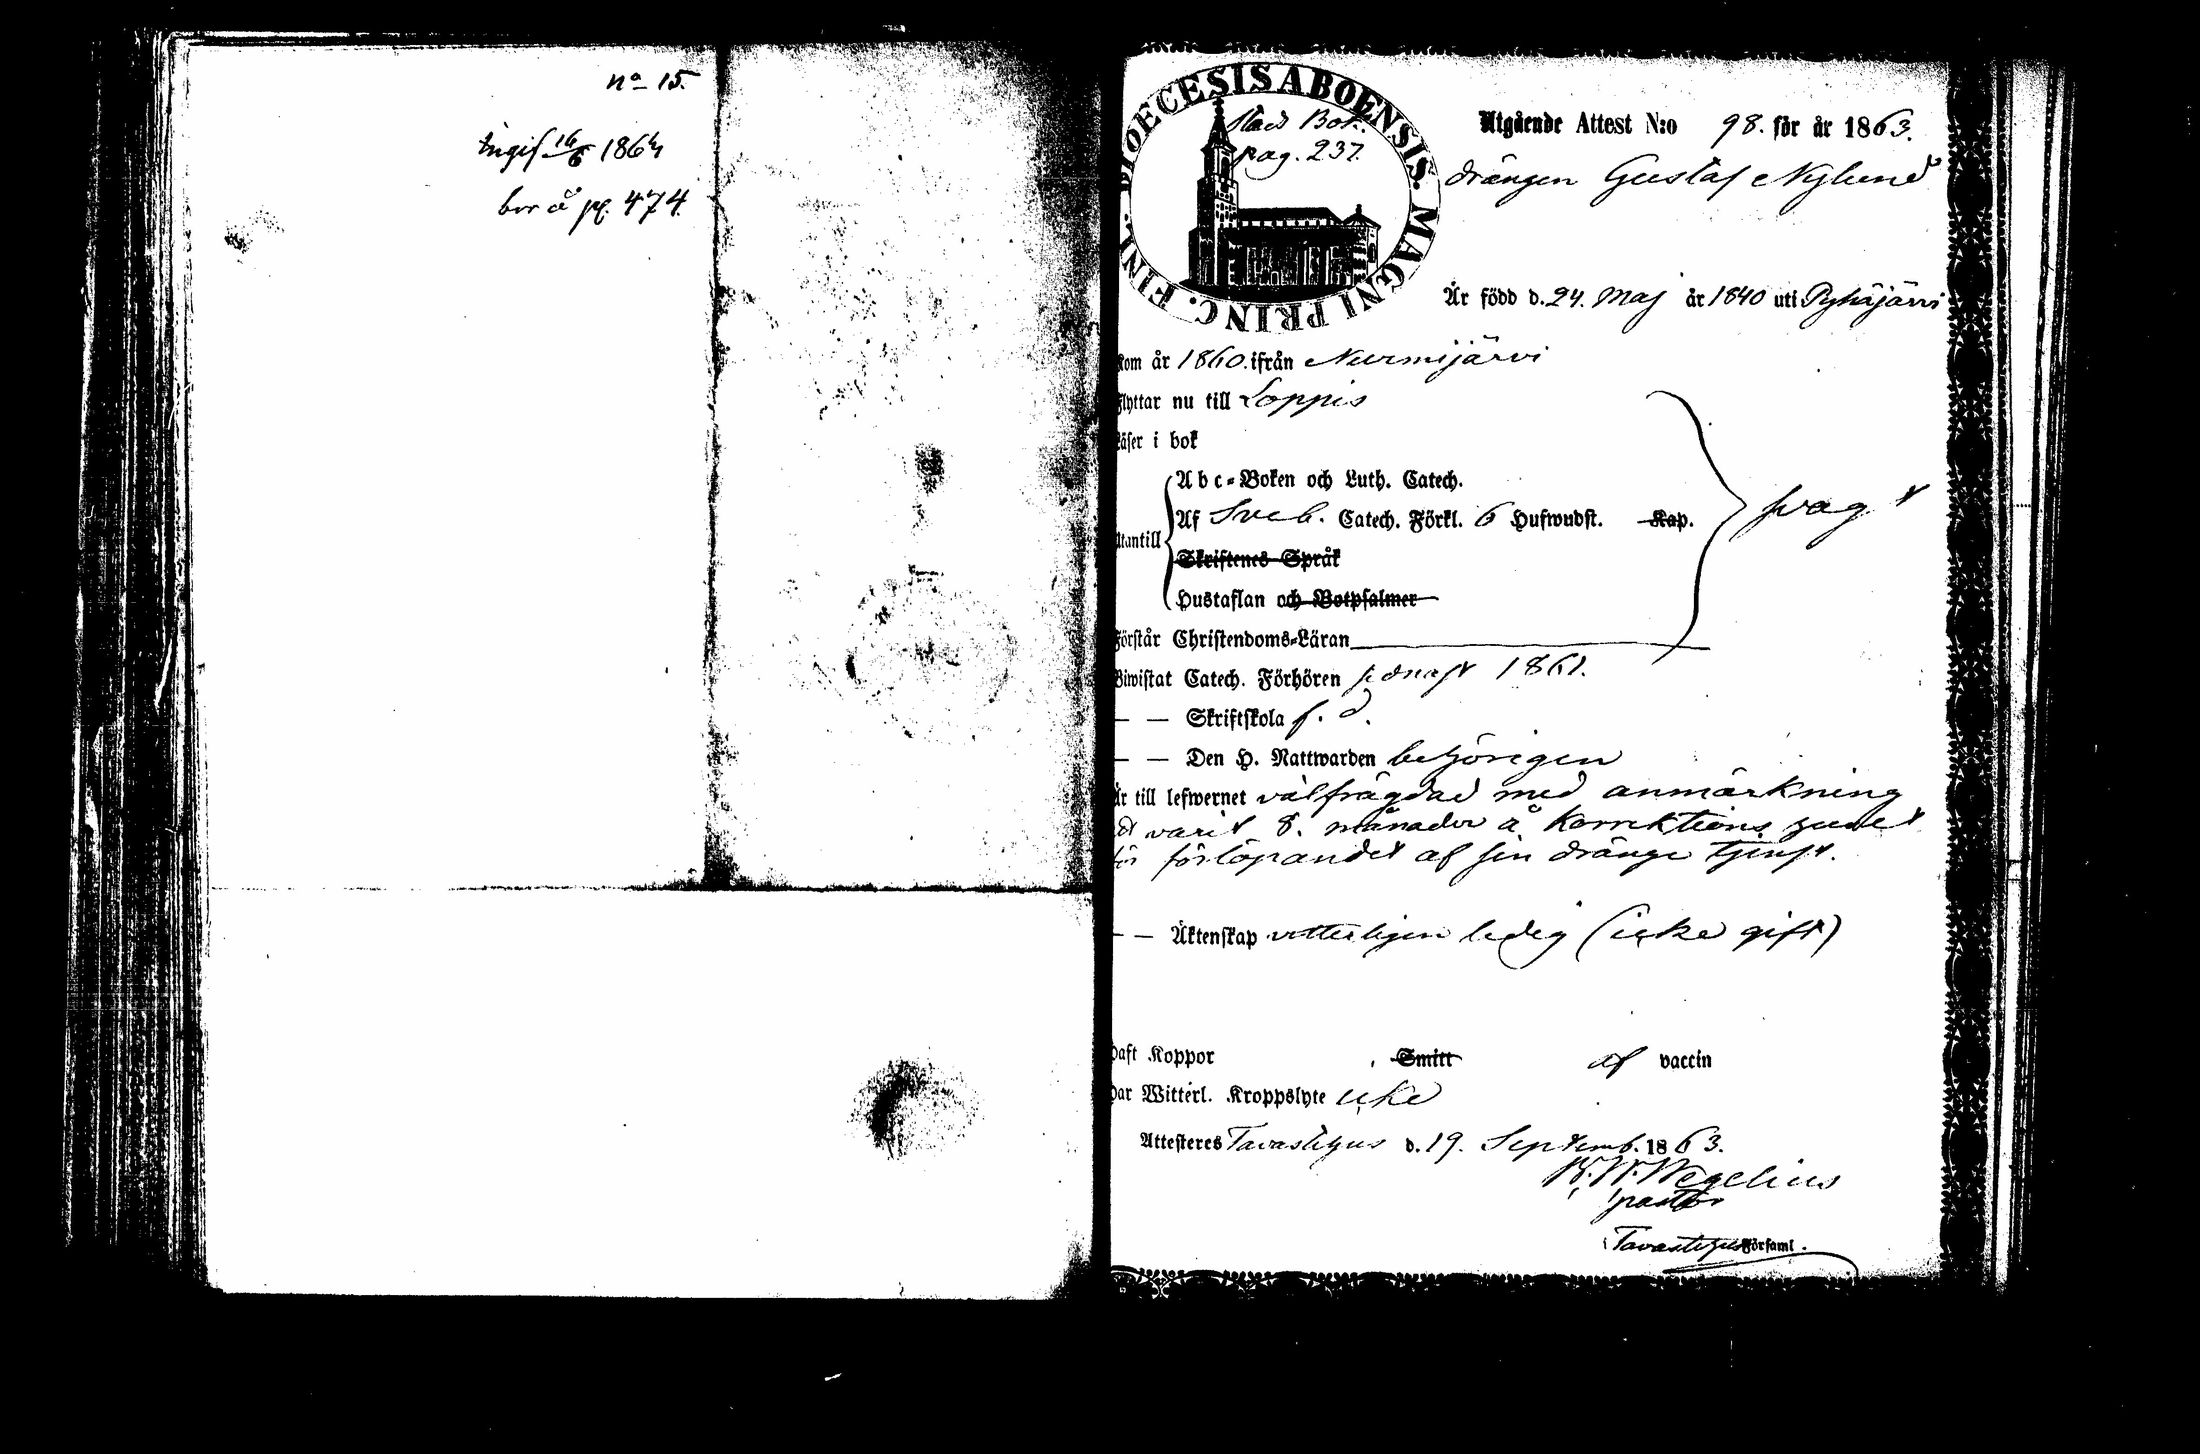 nº 15.
Ingif 16/5 1864
bor å pg. 474.
DIOECESIS ABOENSIS. MAGNI PRINC. FINL.
Stads Bok.
pag. 237.
Utgående Attest N:o 98. för år 1863.
drängen Gustaf Nylund
Är född d. 24. Maj år 1840 uti Pyhäjärvi
Kom år 1860. ifrån Nurmijärvi
Flyttar nu till Loppis
Läser i bok
A b c-Boken och Luth. Catech.
Utantill
Af Sveb. Catech. Förkl. 6 Hufwudst. Kap.
svagt
Skriftenes Språk
Hustaflan och Botpsalmer
Förstår Christendoms-Läran
Biwistat Catech. Förhören sednast 1861.
— — Skriftskola f. d.
— — Den H. Nattwarden behörigen
Är till lefwernet välfrägdad med anmärkning
att varit 8. månader å Korrektions
för förlöpandet af sin dränge tjenst.
— — Äktenskap vetterligen ledig (icke gift)
Haft Koppor , Smitt af vaccin
Har Witterl. Kroppslyte icke
Attesteres Tavastehus d. 19. Septemb. 1863.
K. W. Wegelius
pastor
Tavastehus Församl.